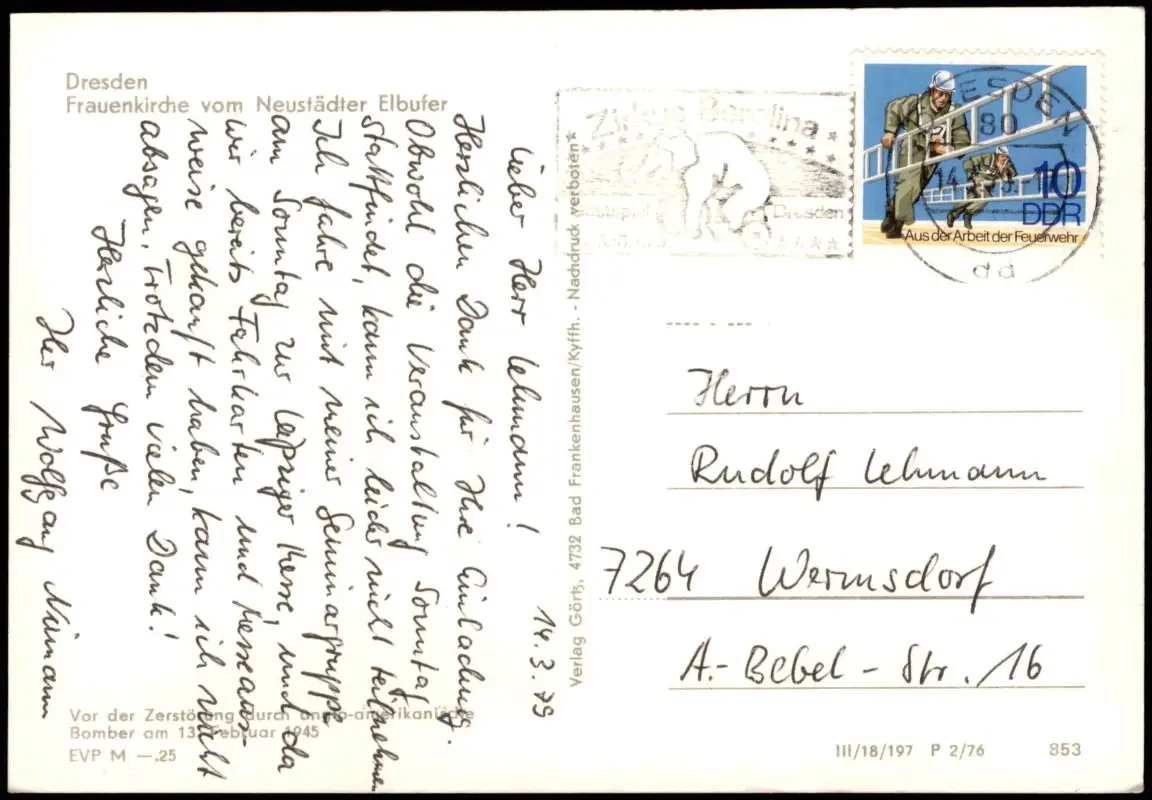 Dresden
Frauenkirche vom Neustädter Elbufer
14.3.79
Lieber Herr Lehmann!
Herzlichen Dank für Ihre Einladung.
Obwohl die Veranstaltung Sonntag
stattfindet, kann ich leider nicht teilnehmen
Ich fahre mit meiner Seminargruppe
am Sonntag zur Leipziger Messe, und da
wir bereits Fahrkarten und Messeaus-
weise gekauft haben, kann ich nicht
absagen, Trotzdem vielen Dank!
Herzliche Grüße
Ihr Wolfgang Naumann
Vor der Zerstörung durch anglo-amerikanische
Bomber am 13. Februar 1945
EVP M —,25
Verlag Görtz, 4732 Bad Frankenhausen/Kyffh. - Nachdruck verboten
Zirkus Berolina
Dresden
DRESDEN
80
14
dd
10
DDR
Aus der Arbeit der Feuerwehr
Herrn
Rudolf Lehmann
7264 Wermsdorf
A.-Bebel-Str. 16
III/18/197 P 2/76 853